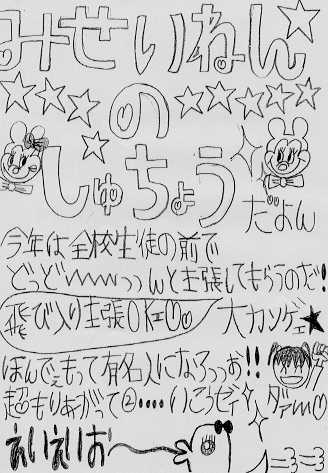 みせいねん
の
しゅちょう
だよん
今年は全校生徒の前で
どっどーんっっんと主張してもらうのだ!
飛び入り主張OK 大カンゲェ★
ほんでぇもって有名人になろっっお!!
超もりあがって②‥‥いこうゼィ ダァー
えいえいおー